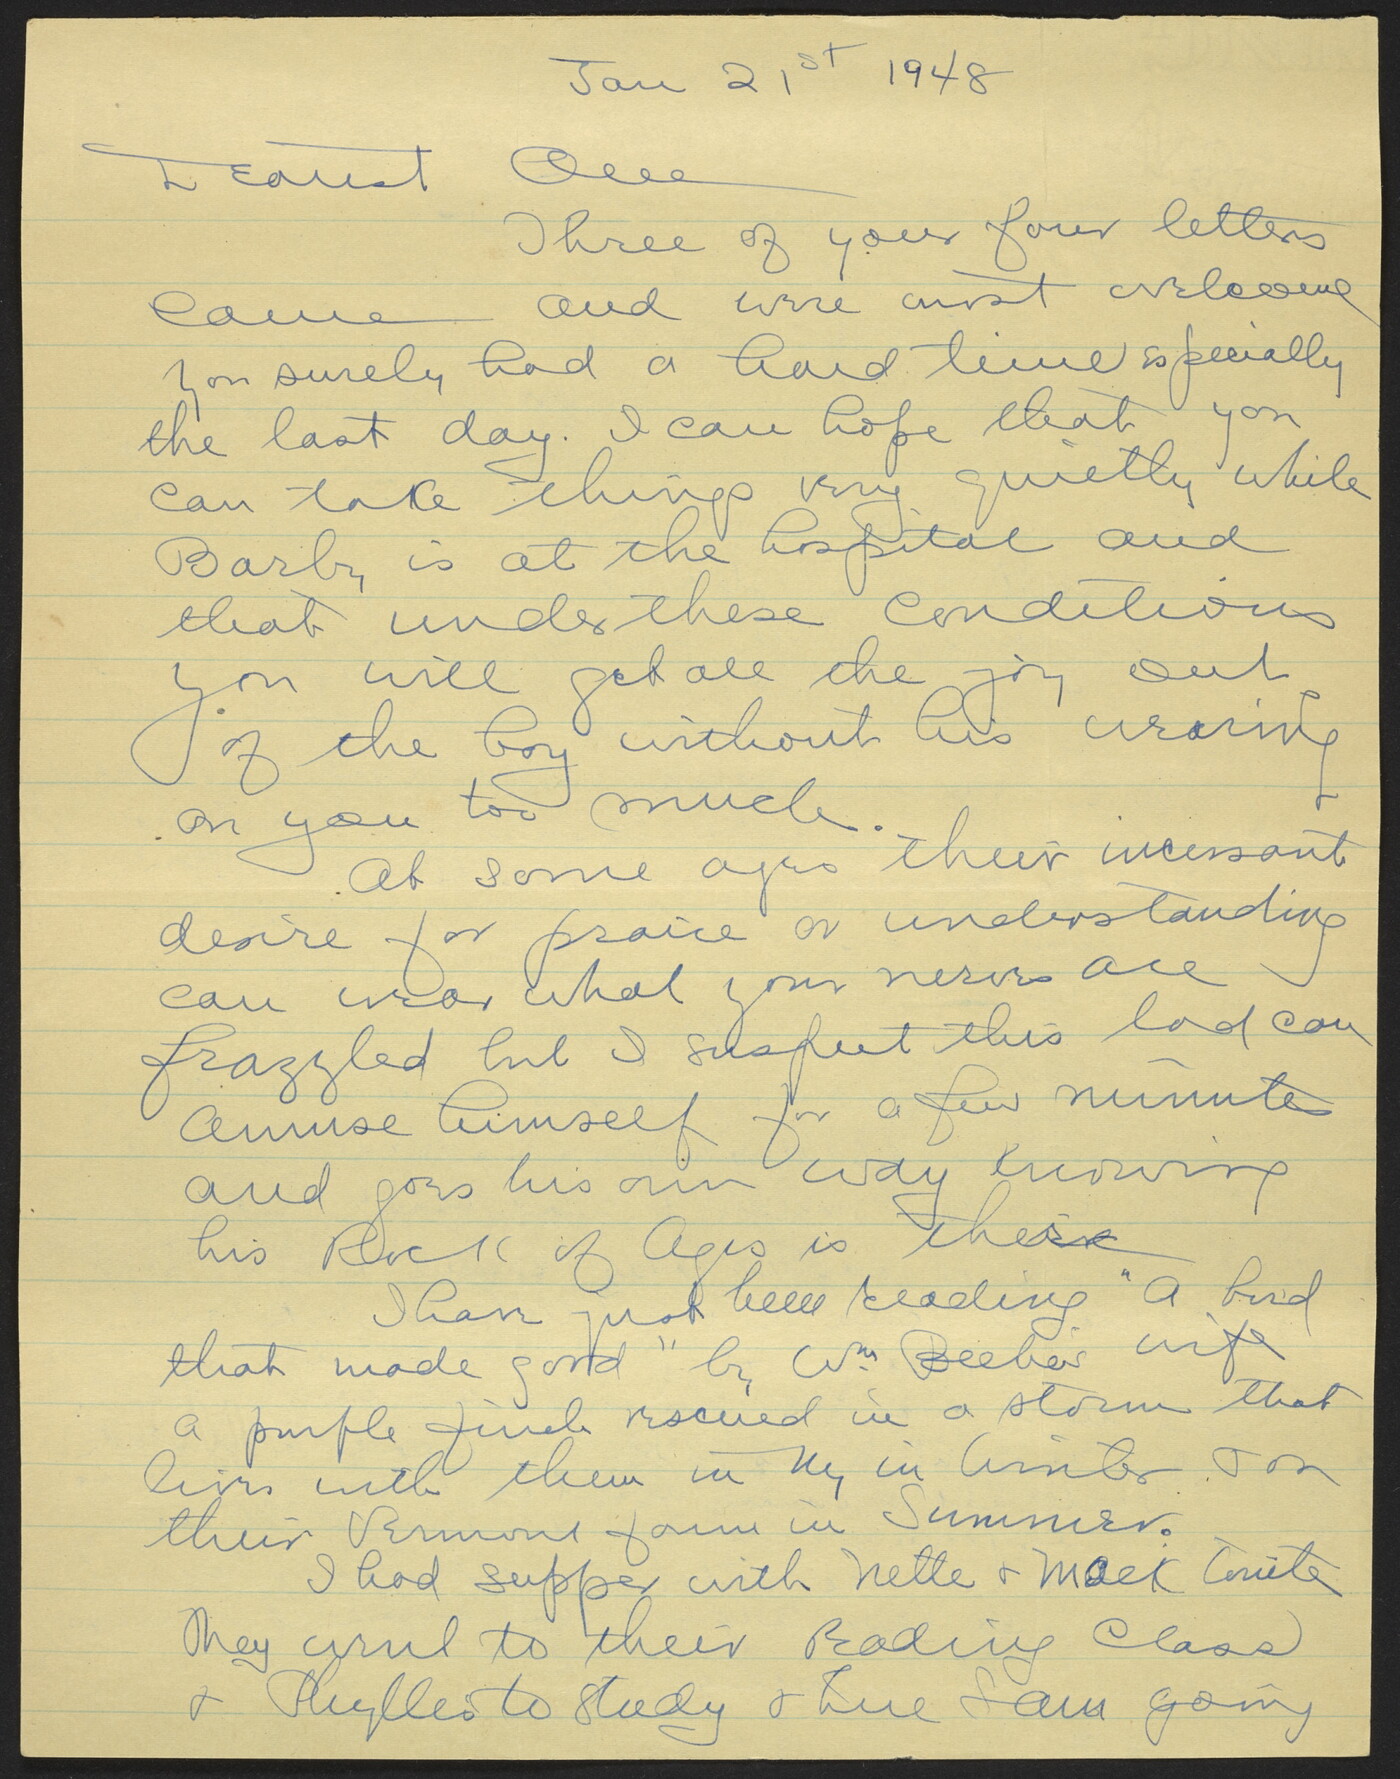 Jan 21st 1948
Dearest One
Three of your four letters
came and were most welcome
you surely had a hard time especially
the last day. I can hope that you
can take things very quietly while
Barby is at the hospital and
that under these conditions
you will get all the joy out
of the boy without his wearing
on you too much.
At some ages their incessant
desire for praise or understanding
can wear what your nerves are
frazzled but I suspect this lad can
amuse himself for a few minutes
and goes his own way knowing
his Rock of Ages is there
I have just been reading "A bird
that made good" by Wm Beebe's wife
a purple finch rescued in a storm that
lives with them in NY in Winter & on
their Vermont farm in Summer.
I had supper with Nette & Mack tonite
They went to their Reading Class
& to Study & here I am going